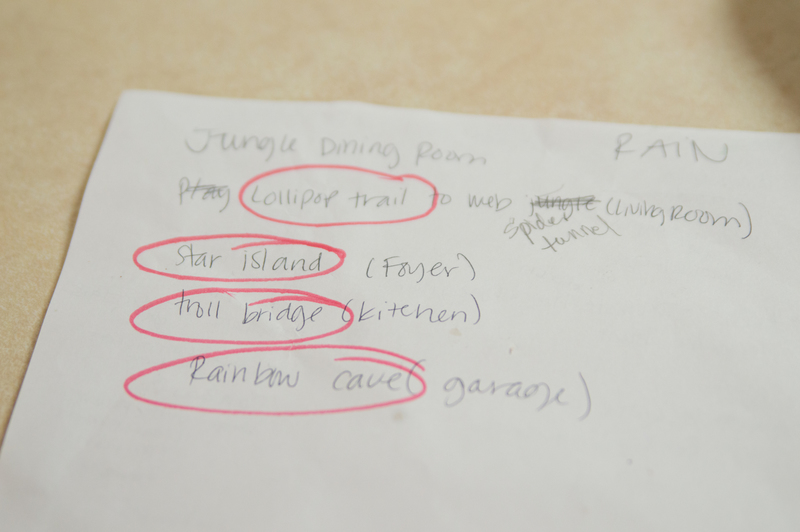 Jungle Dining Room RAIN
Play Lollipop trail to web jungle (Living Room)
spider
tunnel
Star island (Foyer)
troll bridge (kitchen)
Rainbow cave (garage)